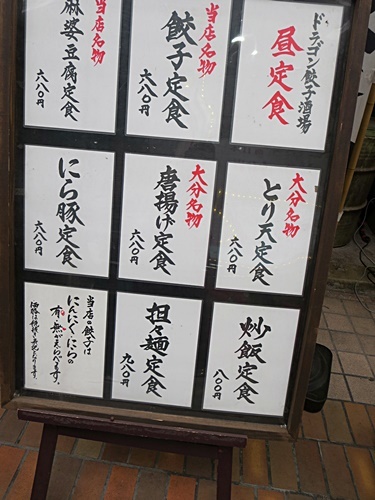 ドラゴン餃子酒場
昼定食
当店名物
餃子定食
六八〇円
当店名物
麻婆豆腐定食
六八〇円
大分名物
とり天定食
六八〇円
大分名物
唐揚げ定食
六八〇円
にら豚定食
六八〇円
炒飯定食
八〇〇円
担々麺定食
九八〇円
当店の餃子は
にんにく・にらの
有・無がえらべます。
価格は税抜き表記になります。